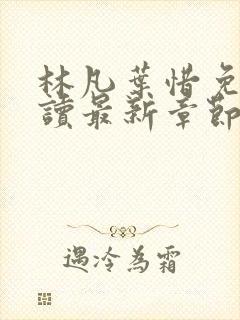 林凡葉惜免
讀最新章節
遇冷為霜